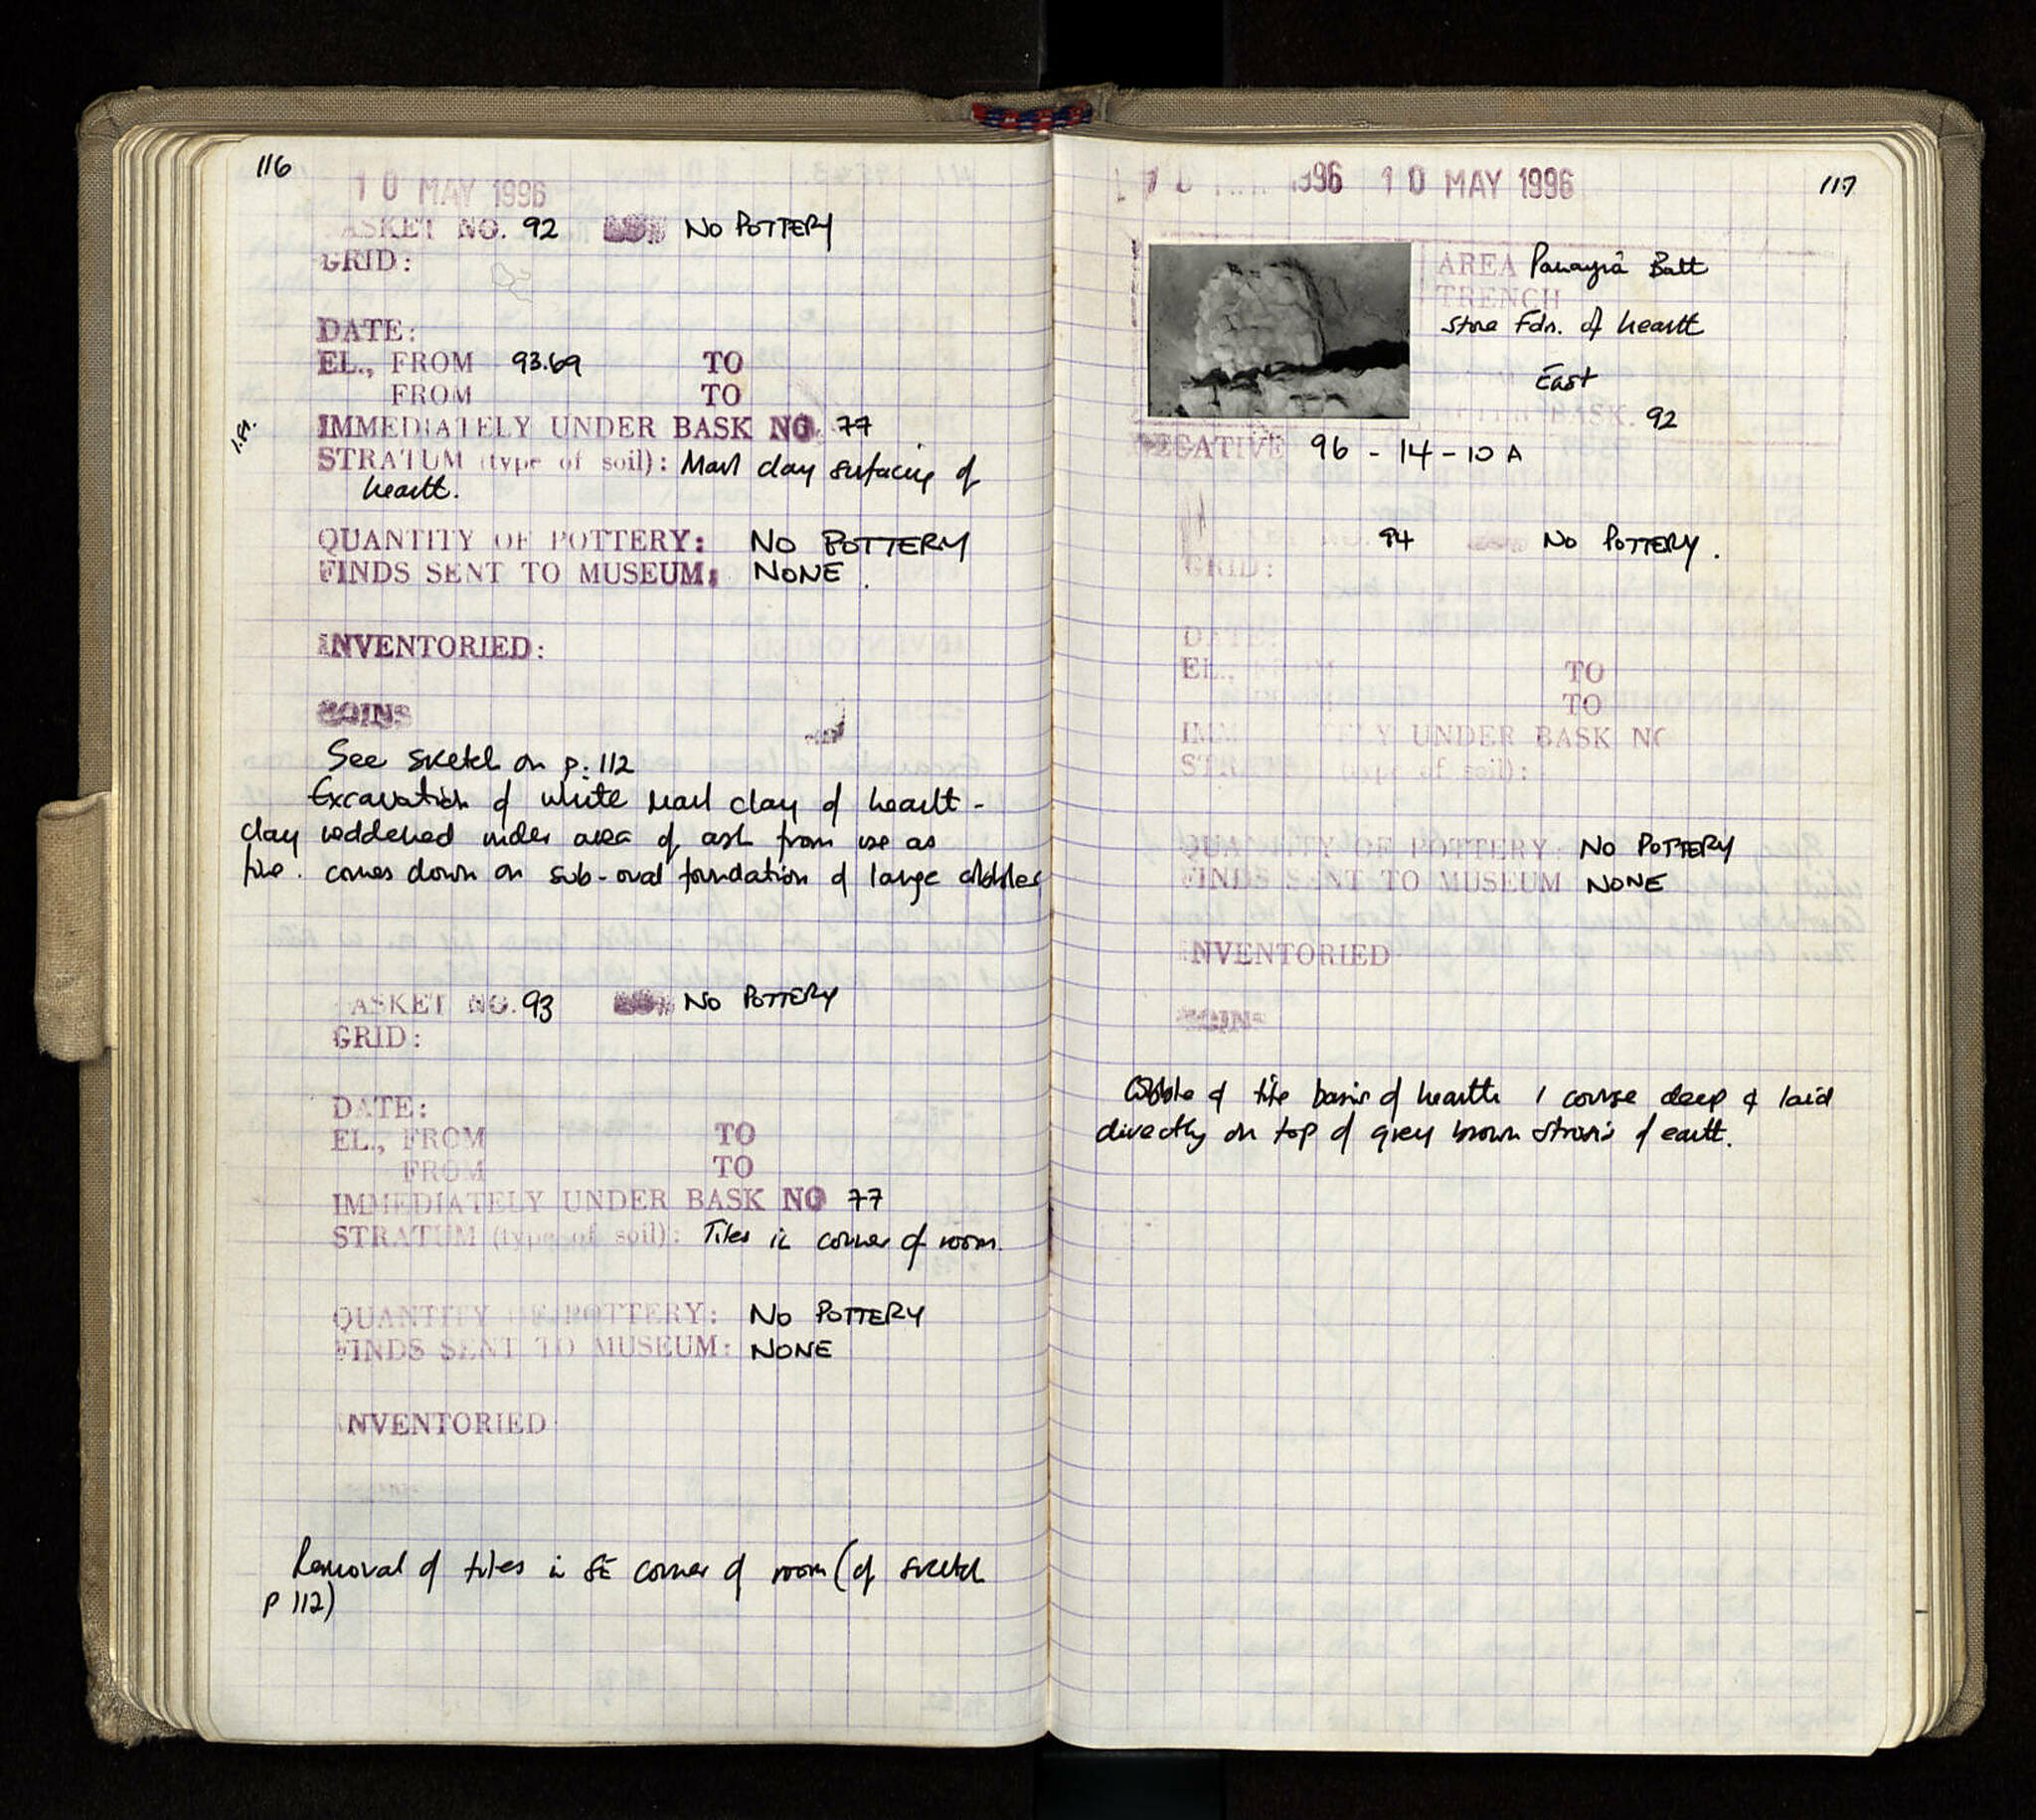 116
10 MAY 1996
ASKET NO. 92 NO POTTERY
GRID:
DATE:
EL., FROM 93.69 TO
FROM TO
IMMEDIATELY UNDER BASK NO. 77
STRATUM (type of soil): Marl clay surfacing of
hearth.
QUANTITY OF POTTERY: NO POTTERY
FINDS SENT TO MUSEUM: NONE.
INVENTORIED:
COINS
See sketch on p. 112
Excavation of white marl clay of hearth -
clay reddened under area of ash from use as
fire. comes down on sub-oval foundation of large cobbles
ASKET NO. 93 NO POTTERY
GRID:
DATE:
EL., FROM TO
FROM TO
IMMEDIATELY UNDER BASK NO 77
STRATUM (type of soil): Tiles in corner of room.
QUANTITY OF POTTERY: NO POTTERY
FINDS SENT TO MUSEUM: NONE
INVENTORIED
Removal of tiles in SE corner of room (cf sketch
p 112)
1996 10 MAY 1996
117
AREA Panayia Bath
TRENCH
Stone Fdn. of hearth
East
BASK. 92
NEGATIVE 96 - 14 - 10 A
94 NO POTTERY.
GRID:
DATE:
EL., TO
TO
UNDER BASK NO
(type of soil):
QUANTITY OF POTTERY: NO POTTERY
FINDS SENT TO MUSEUM NONE
INVENTORIED
COINS
Cobble & tile basis of hearth 1 course deep & laid
directly on top of grey brown stratis of earth.